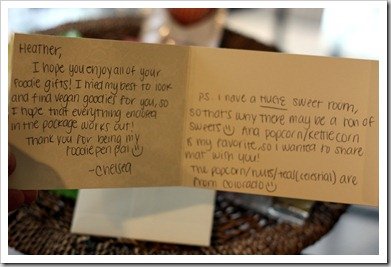 Heather,
I hope you enjoy all of your
foodie gifts! I tried my best to look
and find vegan goodies for you, so
I hope that everything enclosed
in the package works out!
Thank you for being my
foodie pen pal
~Chelsea
P.S. I have a HUGE sweet tooth,
so that's why there may be a ton of
sweets And popcorn/kettlecorn
is my favorite, so I wanted to share
that with you!
The popcorn/nuts/tea(celestial) are
from Colorado